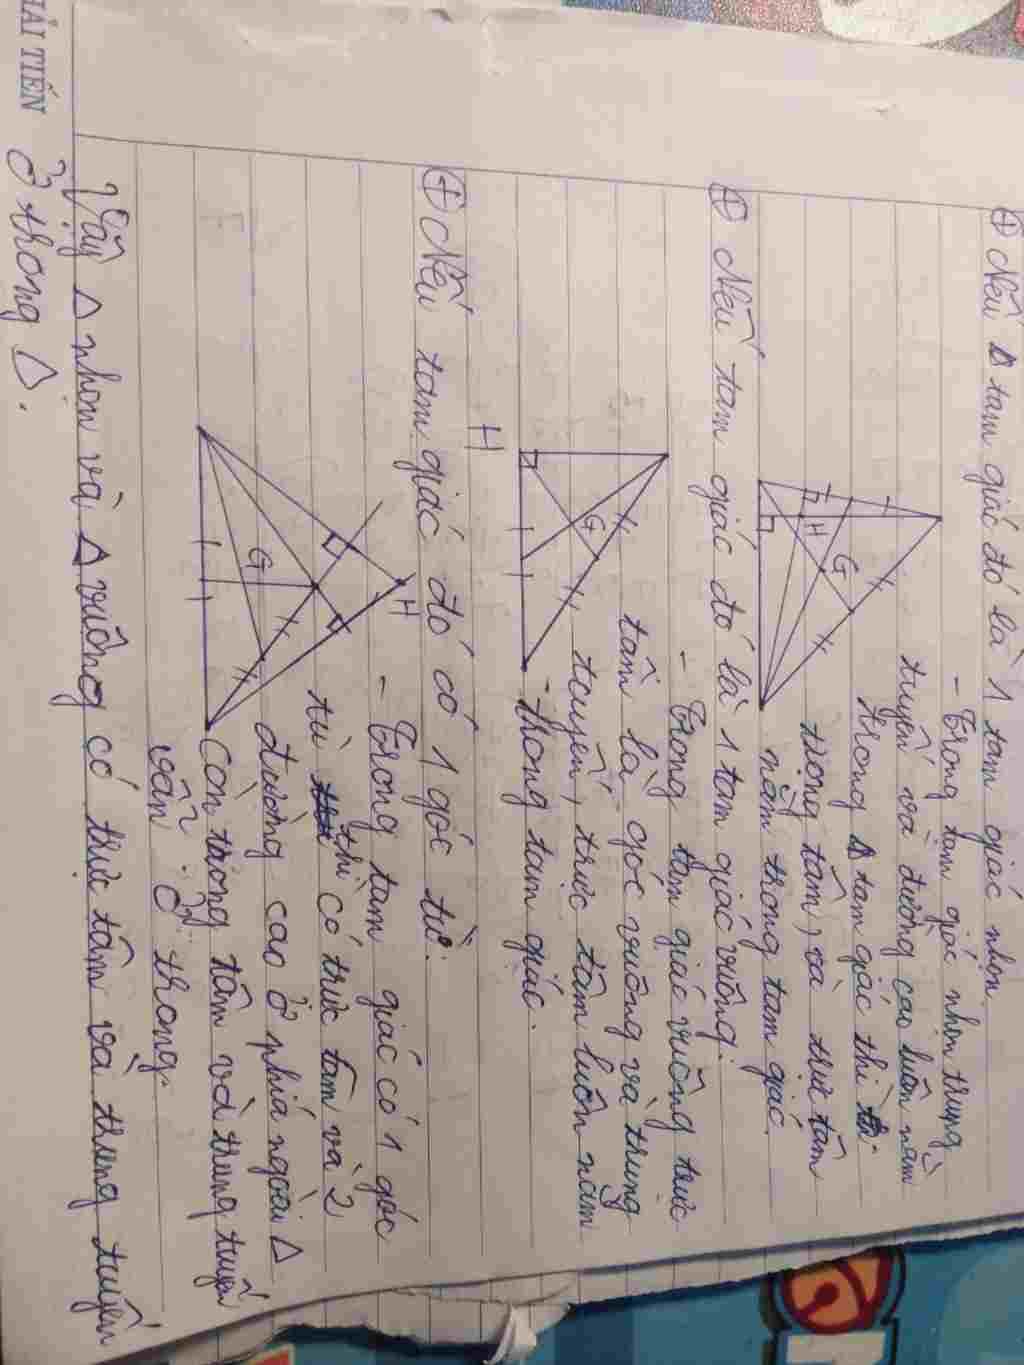 ⊕ Nếu Δ tam giác đó là 1 tam giác nhọn.
- Trong tam giác nhọn trung
tuyến và đường cao luôn nằm
trong Δ tam giác thì
trọng tâm, và trực tâm
nằm trong tam giác.
G
H
⊕ Nếu tam giác đó là 1 tam giác vuông:
- Trong tam giác vuông trực
tâm là góc vuông và trung
tuyến, trực tâm luôn nằm
- trong tam giác.
G
H
⊕ Nếu tam giác đó có 1 góc tù:
- Trong tam giác có 1 góc
tù thì có trực tâm và 2
đường cao ở phiá ngoài Δ
Còn trong tâm và trung tuyến
vẫn ở trong.
H
G
Vậy Δ nhọn và Δ vuông có trực tâm và trung tuyến
ở trong Δ.
HẢI TIẾN